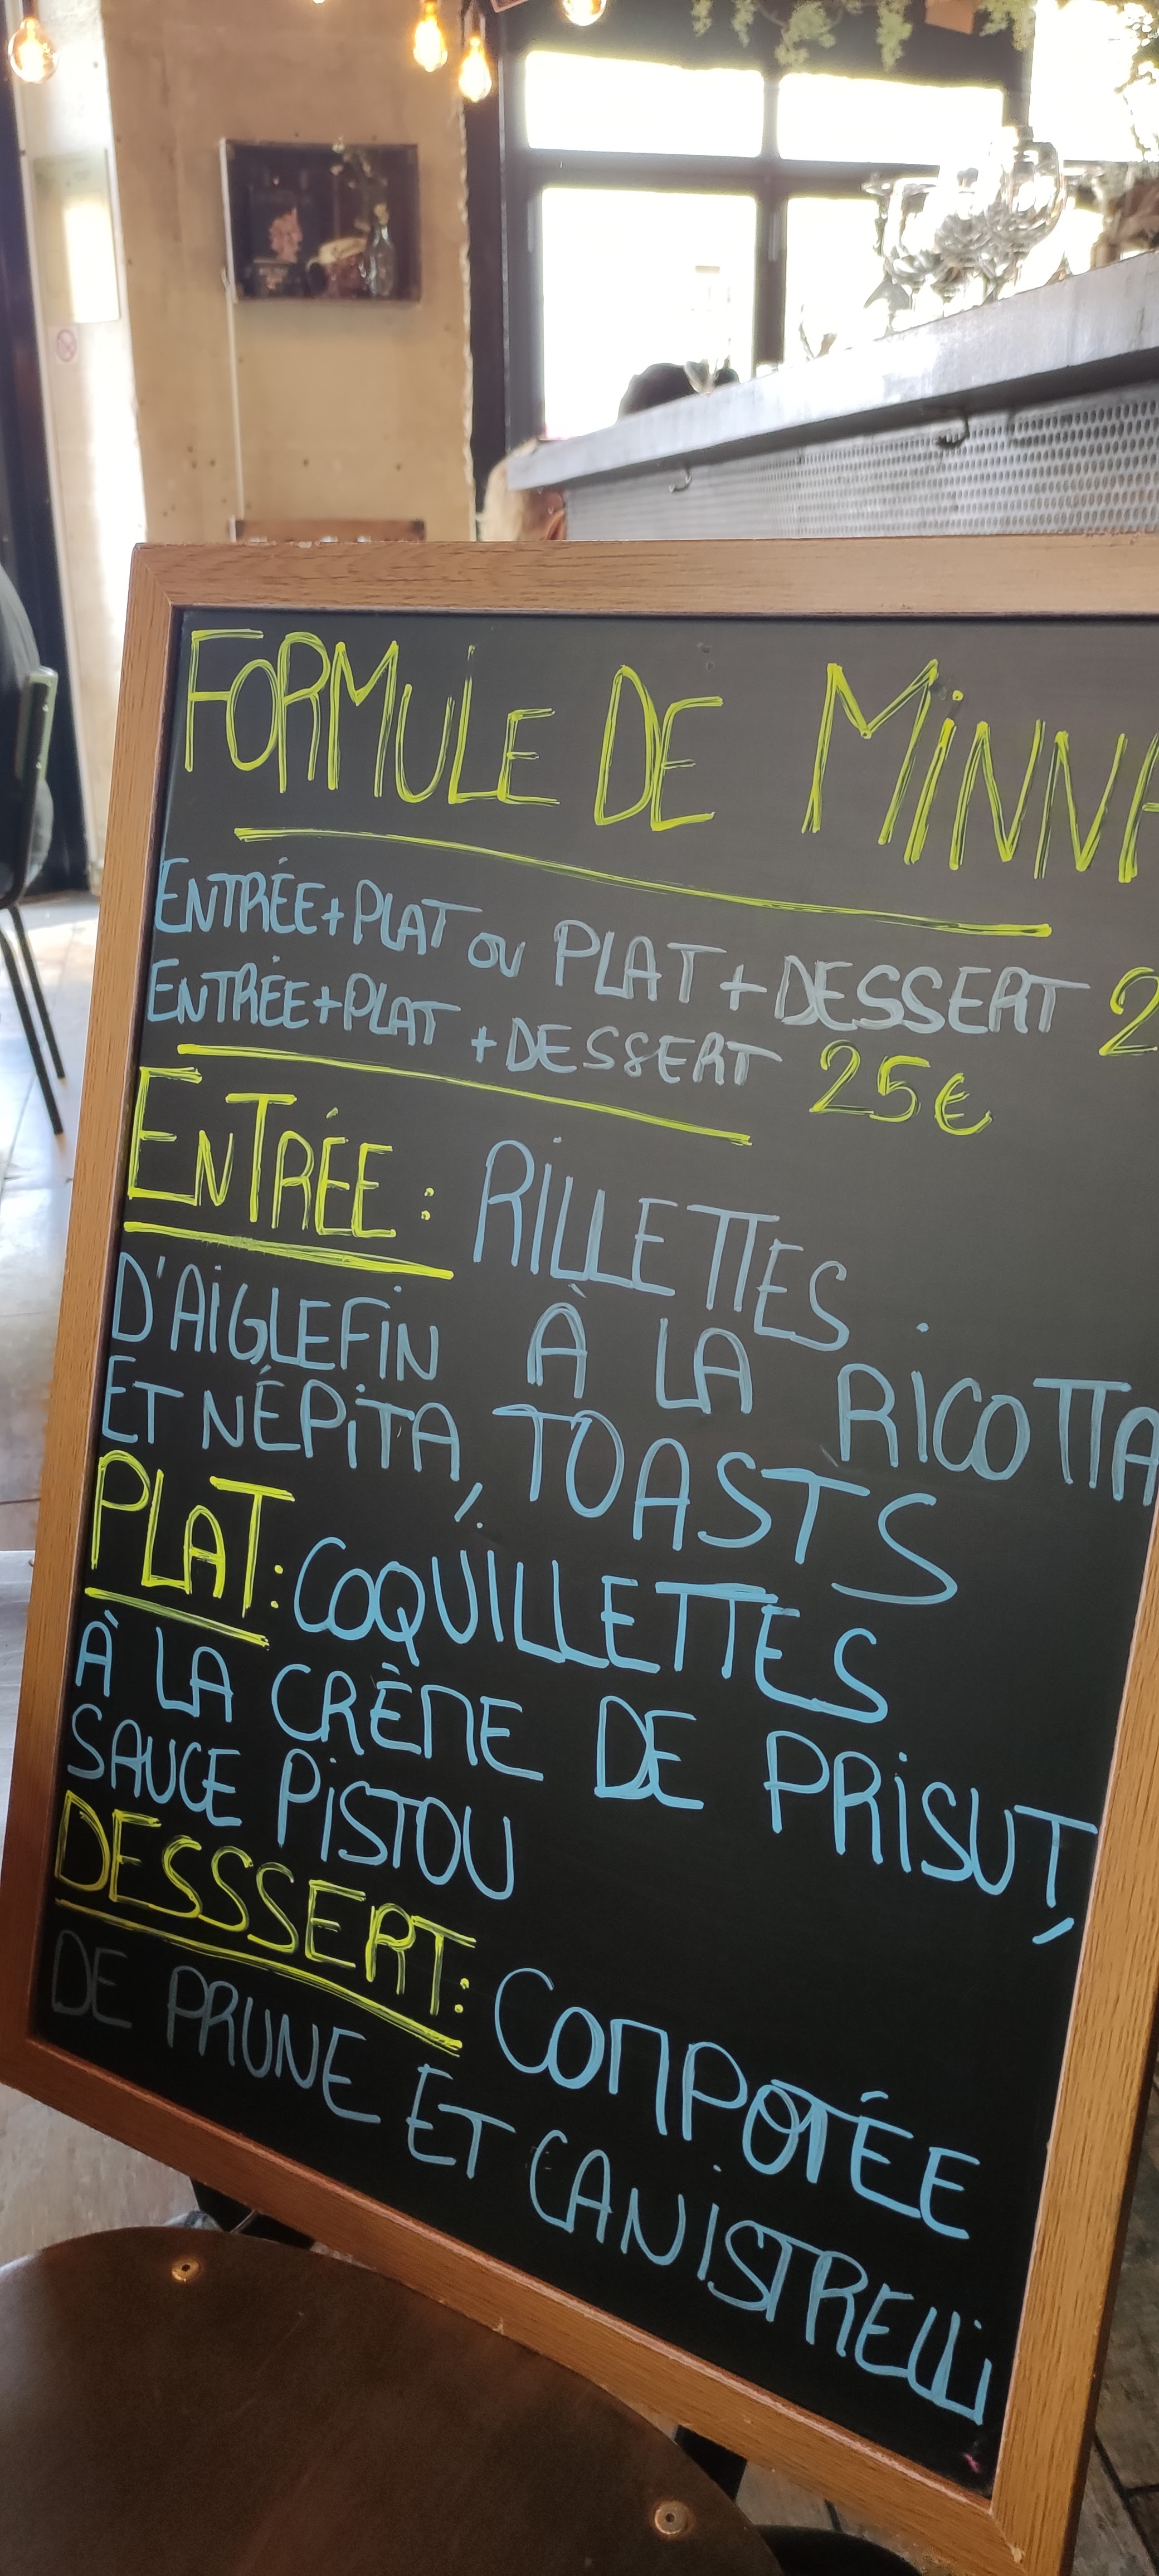 FORMULE DE MINNA
ENTRÉE+PLAT OU PLAT+DESSERT 2
ENTRÉE+PLAT +DESSERT 25€
ENTRÉE: RILLETTES
D'AIGLEFIN À LA RICOTTA
ET NÉPITA, TOASTS
PLAT: COQUILLETTES
À LA CRÈME DE PRISUT,
SAUCE PISTOU
DESSSERT: COMPOTÉE
DE PRUNE ET CANISTRELLI